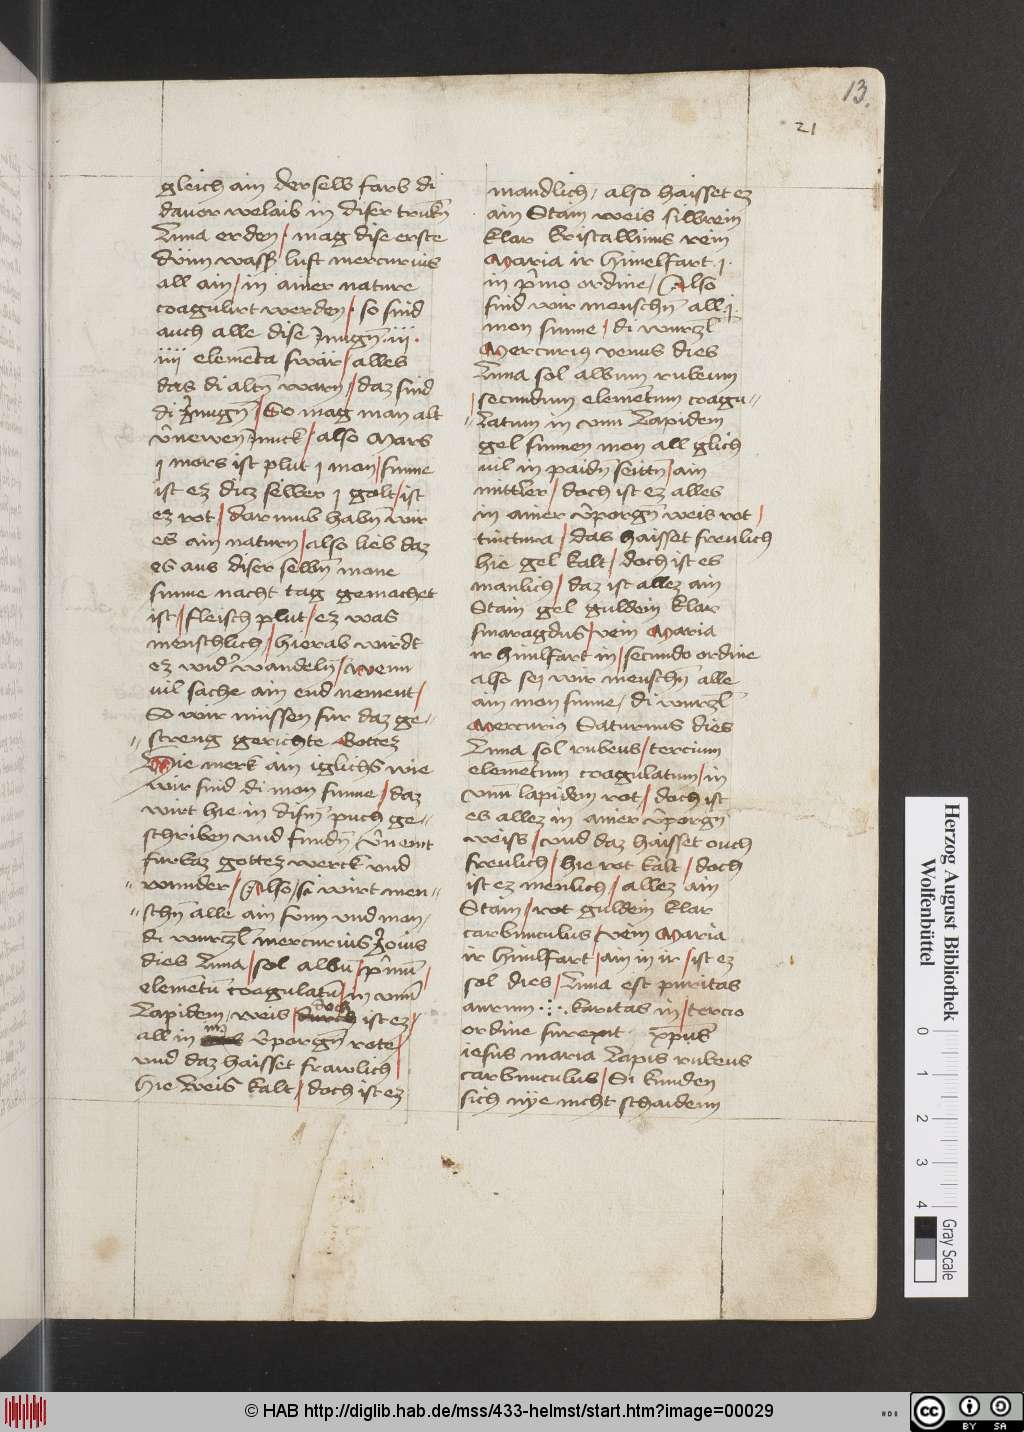 13.
21
gleich ain derselb farb di
dauor welaib in diser trukn̄
Luna erden / mag dise erste
dünn wass̄ luft mercurius
all ain / in ainer nature
coagulirt werden / so sind
auch alle dise iii.
iiii elementa swär / alles
das di altn̄ warn / daz sind
di / So mag man alt
also Mars
mors ist plut mon / sunne
ist ez diz silber golt / ist
ez rot / dar umb habn̄ wir
es ain naturn / also leib daz
es aus diser selbn̄ mone
sunne nacht tag gemachet
ist / fleisch plut / ez was
menschlich / hierab wirdt
ez wid̄ wandeln̄ / Wenn
uil sache ain end nement /
So wir müssen fur daz ge=
= streng gerichte Gottez
Hie merk ain iglichs wie
wir sind di mon sunne / daz
wirt hie in dism̄ puch ge=
schriben vnd fundn̄ /
furbaz gottez werck vnd
= wunder / Also / si wirt men=
= schn̄ alle ain sunn vnd mon /
di wurzl̄ mercurius Jouis
dies Luna / sol albū / p̄mū /
elementū coagulatū / in vnū
Lapidem weis / doch ist ez /
all in ain̄ v̄porgn̄ rote /
vnd daz haisset frawlich /
hie weis kalt / doch ist ez
mandlich / also haisset ez
ain Stain weis silbrein
klar kristallinus rein
Maria ir himelfart
in p̄mo ordine / Also
sind wir menschn̄ all
mon sunne / di wurzl̄
Mercurius venus dies
Luna sol album rubeum
secundum elemētum coagu=
= Latum in vnū Lapidem
gel sunnen mon all glich
uil in paidn seittn / ain
mittler / doch ist ez alles
in ainer v̄porgn̄ weis rot /
tinctura / das haisset freulich
hie gel kalt / doch ist es
manlich / daz ist allez ain
Stain gel guldein klar
smaragdus / rein Maria
ir himlfart in / secundo ordine
also sei wir menschn̄ alle
ain mon sunne / di wurzl̄
Mercurius Saturnus dies
Luna sol rubeus / tercium
elemētum coagulatum / in
vnū lapidem rot / doch ist
es allez in ainer v̄porgn̄
weiss / vnd daz haisset ouch
freulich / hie rot kalt / doch
ist ez menlich / allez ain
Stain / rot guldein klar
carbunculus / rein Maria
ir himlfart / am in ir / ist ez
sol dies / Luna est puritas
aurum karitas in / tercio
ordine surexit xp̄us
iesus maria Lapis rubeus
carbunculus / Si kunden
sich nye nicht schaidenn
Herzog August Bibliothek
Wolfenbüttel
0 1 2 3 4
Gray Scale
© HAB http://diglib.hab.de/mss/433-helmst/start.htm?image=00029
HAB
cc BY SA